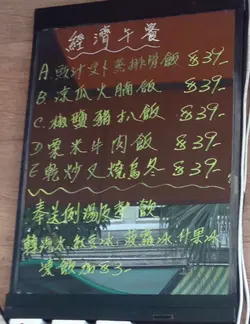 經濟午餐
A. 豉汁蒸排骨飯 $39-
B. 涼瓜火腩飯 $39-
C. 椒鹽豬扒飯 $39-
D 粟米牛肉飯 $39-
E 乾炒叉燒烏冬 $39-
奉送例湯及熱飲
紅豆冰, 菠蘿冰, 什果冰
凍飲加$3-